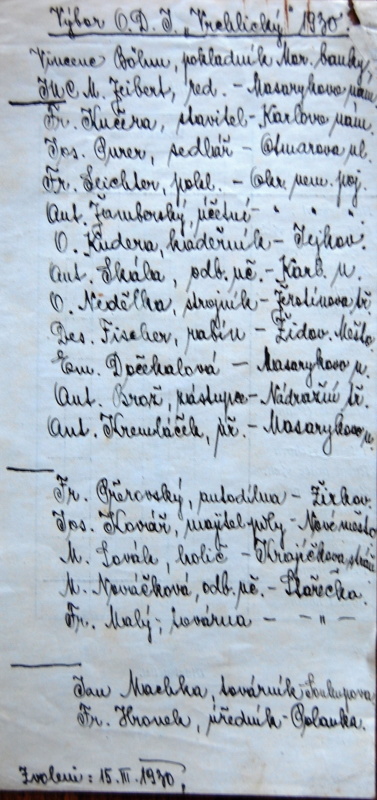 Výbor O.D.J. „Vrchlický" 1930.
Vincenc Böhm, pokladník Mor. banky,
JUC. M. Zeibert, red. - Masarykovo nám.
Fr. Kučera, stavitel - Karlovo nám.
Jos. Gurer, sedlář - Otmarova ul.
Fr. Leichter, pokl. - Okr. nem. poj.
Ant. Žamborský, účetní - " " "
O. Kudera, kadeřník - Jejkov.
Ant. Skála, odb. uč. - Karl. n.
O. Nedělka, strojník - Žerotínova tř.
Des. Fischer, rabín - Židov. Město
Em. Dočkalová - Masarykovo n.
Ant. Brož, zástupce - Nádražní tř.
Ant. Kremláček, úř. - Masarykovo n.
Fr. Přerovský, autodílna - Žirkov.
Jos. Kovář, majitel pily - Nové město
M. Lovák, holič - Krajíčkova
M. Nováčková, odb. uč. - Stařečka.
Fr. Malý, továrna - - " -
Jan Machka, továrník Soukupova
Fr. Hronek, úředník - Polanka.
Zvoleni: 15. III. 1930.